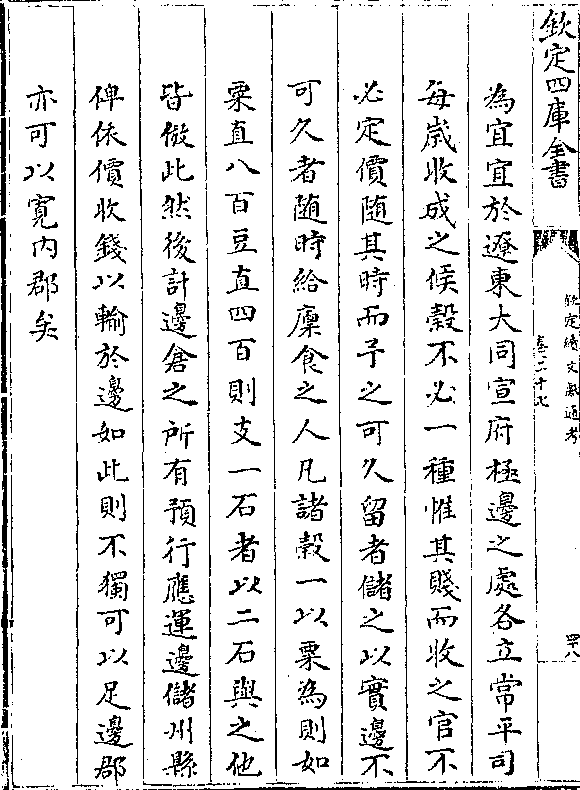 欽定四庫全書
欽定續文獻通考
卷二十七
四十八
為宜宜於遼東大同宣府極邊之處各立常平司
每歲收成之候穀不必一種惟其賤而收之官不
必定價隨其時而予之可久留者儲之以實邊不
可久者隨時給廩食之人凡諸穀一以粟為則如
粟直八百豆直四百則支一石者以二石與之他
皆倣此然後計邊倉之所有預行應運邊儲州縣
俾依價收錢以輸於邊如此則不獨可以足邊郡
亦可以寛内郡矣